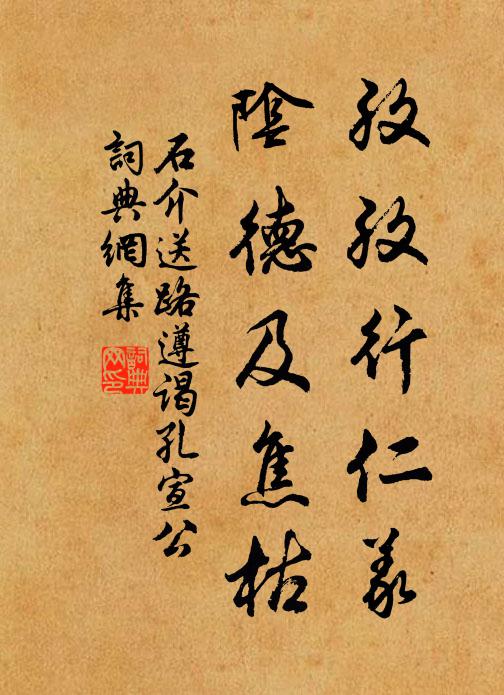 孜孜行仁義
陰德及焦枯
石介送路遵謁孔宣公
詞典網集
詞典
网印